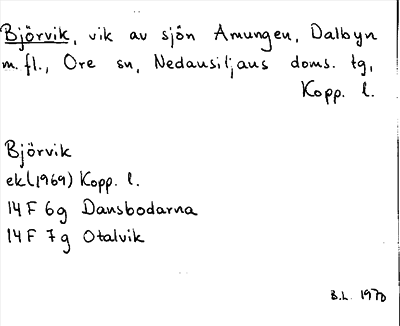 Björvik, vik av sjön Amungen, Dalbyn
m.fl., Ore sn, Nedansiljans doms. tg,
Kopp. l.
Björvik
ekl(1969) Kopp. l.
14 F 6g Dansbodarna
14 F 7g Otalvik
B.L. 1970